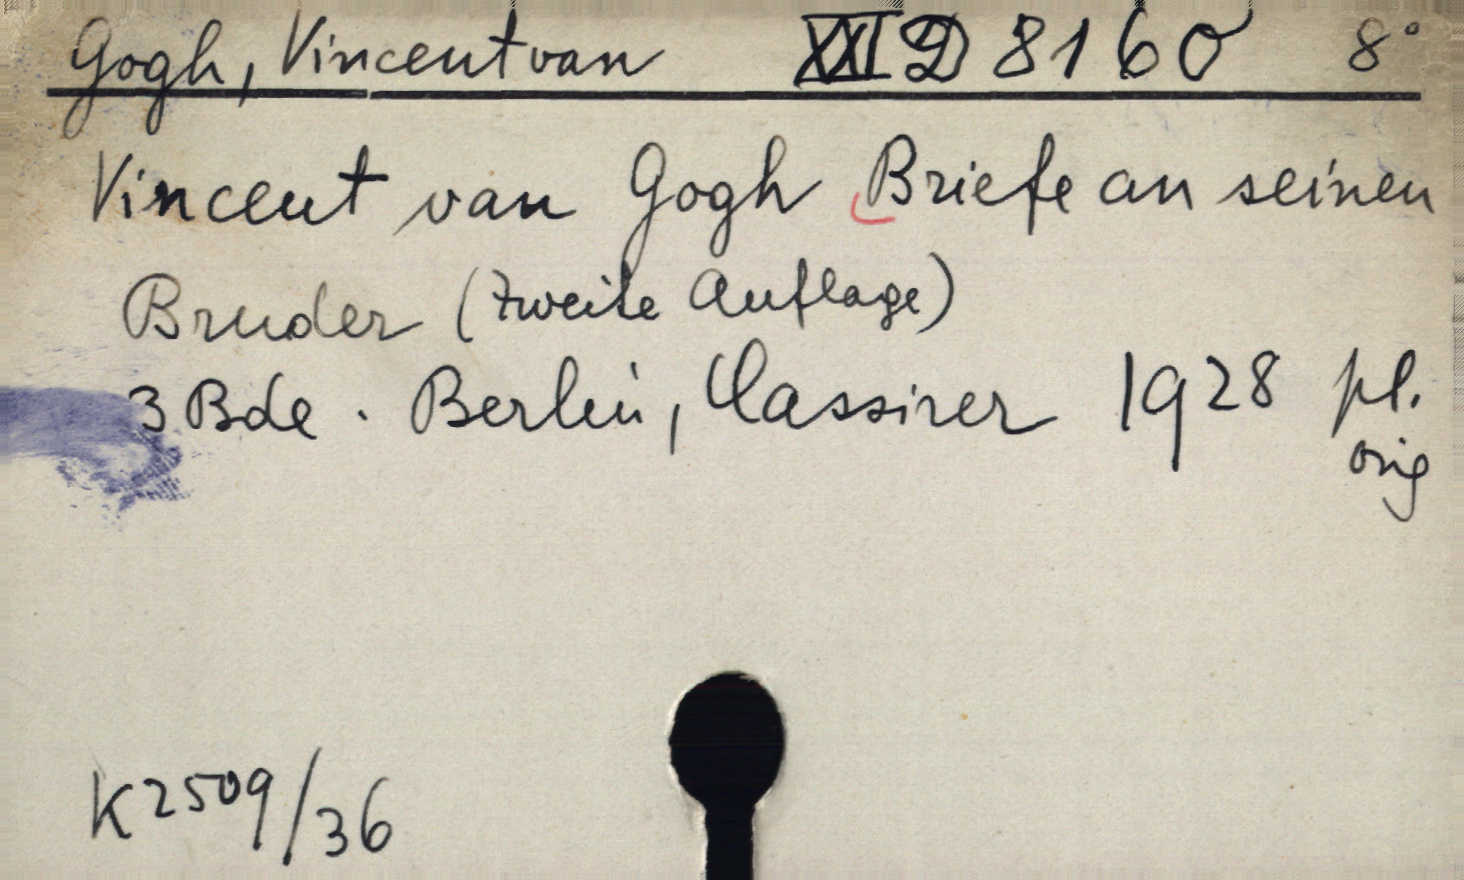 Gogh, Vincent van XXI D 8160 8°
Vincent van Gogh Briefe an seinen
Bruder (Zweite Auflage)
3 Bde. Berlin, Cassirer 1928 pl.
orig
K 2509/36